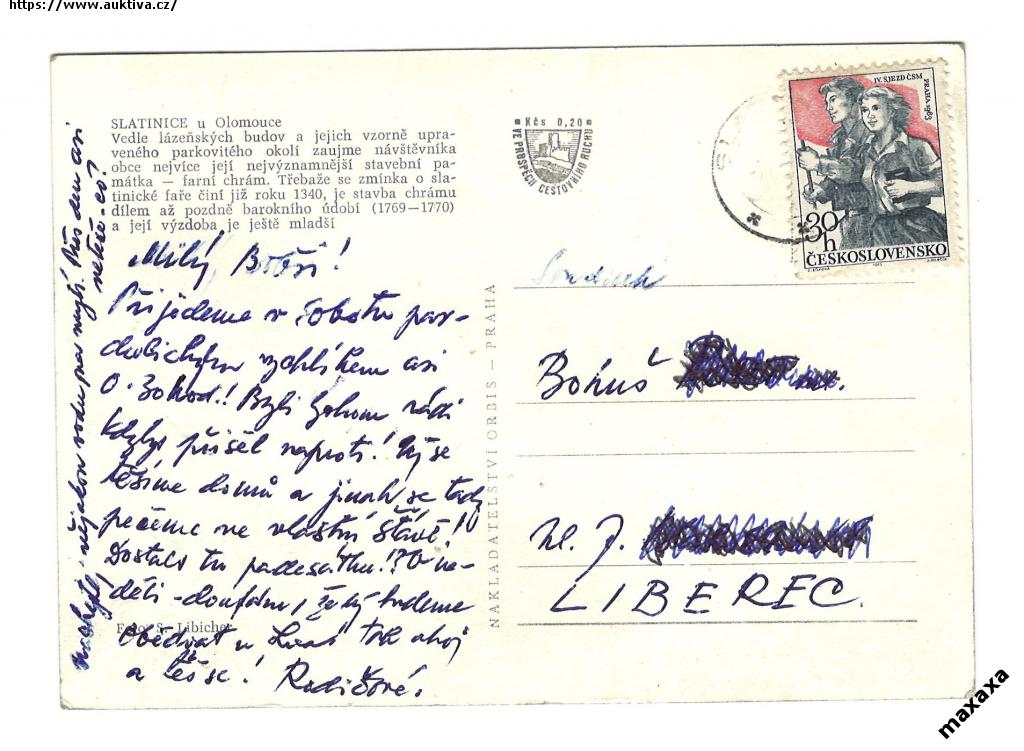 https://www.auktiva.cz/
SLATINICE u Olomouce
Vedle lázeňských budov a jejich vzorně upra-
veného parkovitého okolí zaujme návštěvníka
obce nejvíce její nejvýznamnější stavební pa-
mátka — farní chrám. Třebaže se zmínka o sla-
tinické faře činí již roku 1340, je stavba chrámu
dílem až pozdně barokního údobí (1769—1770)
a její výzdoba je ještě mladší
Kčs 0,20
VE PROSPĚCH CESTOVNÍHO RUCHU
IV. SJEZD ČSM
PRAHA 1963
30h
ČESKOSLOVENSKO
Milý
Přijedeme v sobotu par-
dubickým rychlíkem asi
Byli bychom rádi
kdybys přišel naproti! Už se
těšíme domů a jinak se tady
pečeme ve vlastní šťávě!
Dostals tu padesátku!? V ne-
děli - doufám, že už budeme
obědvat u tak ahoj
a těš se!
nějakou vodu na mytí. Přes den asi
neteče - co?
Foto S. Libíche
NAKLADATELSTVÍ ORBIS — PRAHA
Bohuš
J.
LIBEREC.
maxaxa